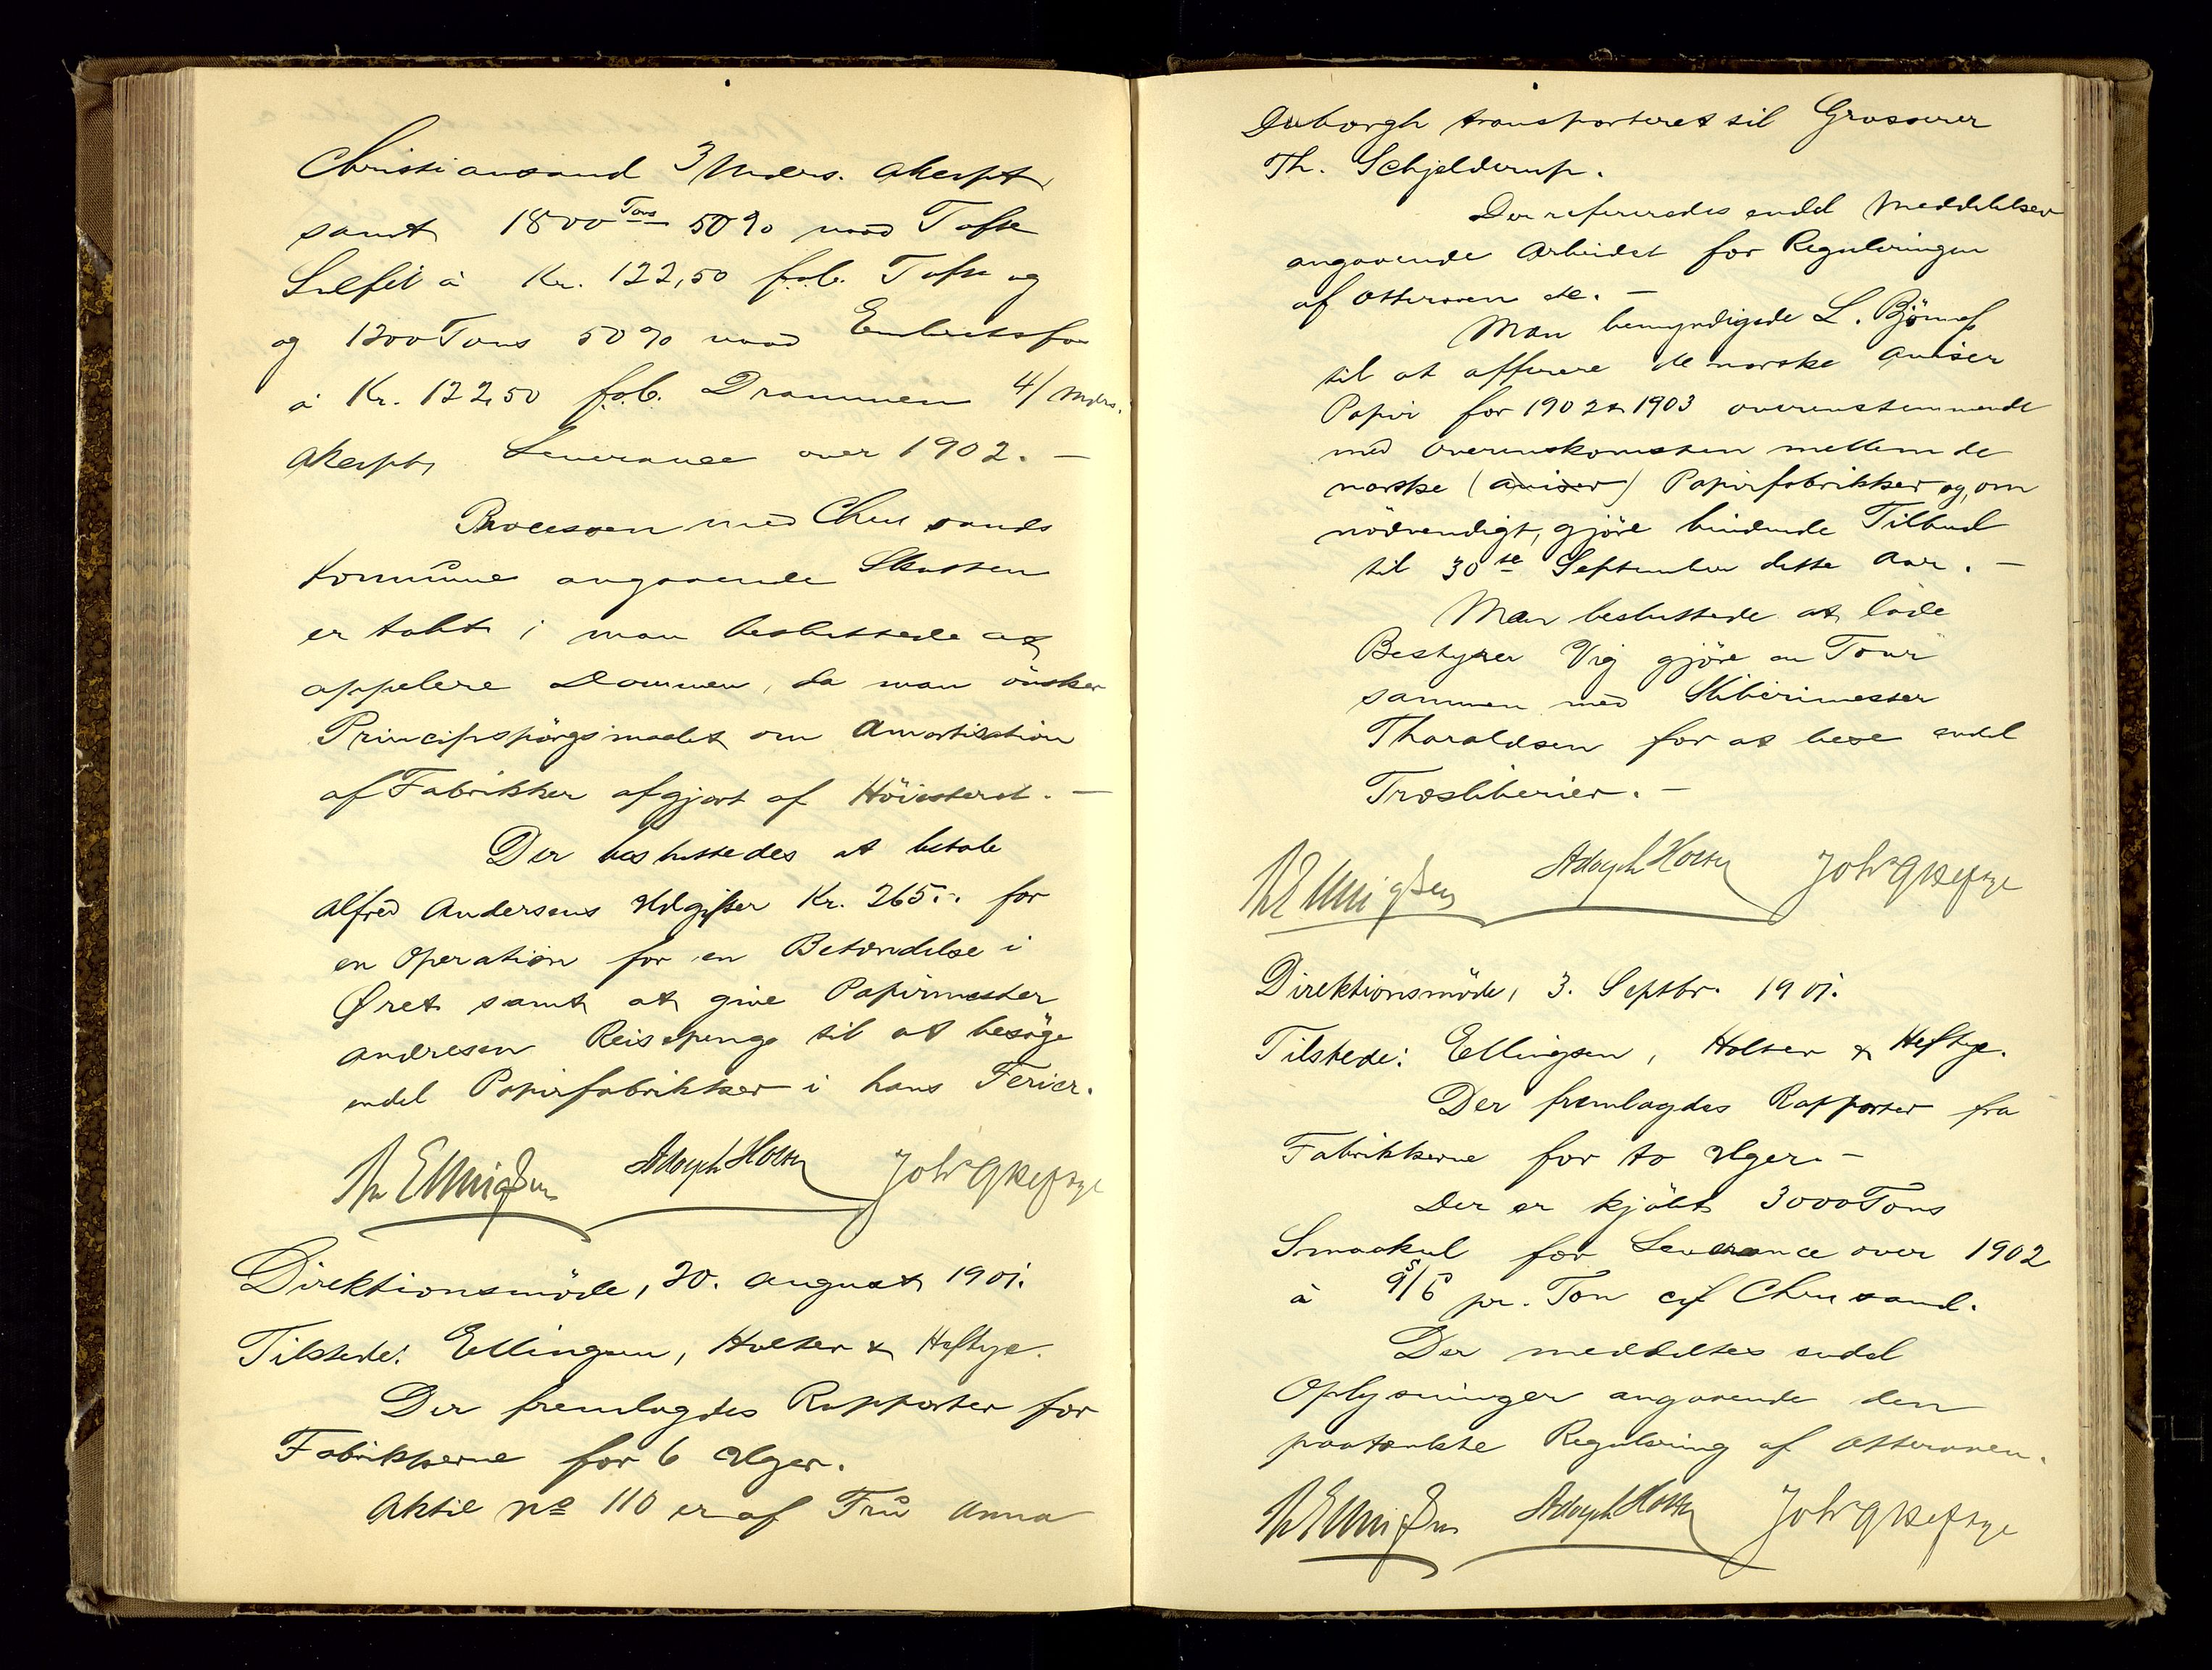 Christiansand 3 Mders. Akcept,
samt 1800 Tons 50% vaad Tofte
Sulfit à Kr. 122,50 f.o.b. Tofte og
og 1200 Tons 50% vaad Embretsfos
à Kr. 122,50 f.o.b. Drammen 4/ Mdrs.
Akcept, Leverance over 1902. —
Processen med Chrssands
Kommune angaaende Skatten
er tabt; man besluttede at
appelere Dommen, da man önsker
Principspörgsmaalet om Amortisation
af Fabrikker afgjort af Höiesteret. —
Der besluttedes at betale
Alfred Andersens Udgifter Kr. 265.-. for
en Operation for en Betændelse i
Øret samt at give Papirmester
Andresen Reisepenge til at besöge
endel Papirfabrikker i hans Ferier.
Ellingsen Adolph Holter Joh. Heftye
Direktionsmöde, 20. August 1901.
Tilstede: Ellingsen, Holter & Heftye.
Der fremlagdes Rapporter for
Fabrikkerne for 6 Uger.
Aktie No 110 er af Frü Anna
Duborgh transporteret til Grosserer
Th. Schjelderup.
Der refereredes endel Meddelelser
angaaende Arbeidet for Reguleringen
af Otteraaen etc. —
Man bemyndigede L. Björnes
til at offerere de norske Aviser
Papir for 1902 & 1903 overensstemmende
med Overenskomsten mellem de
norske (Aviser) Papirfabrikker og, om
nödvendigt, gjöre bindende Tilbud
til 30te September dette Aar. —
Man besluttede at lade
Bestyrer Vig gjöre en Tour
sammen med Sliberimester
Tharaldsen for at bese endel
Træsliberier. —
Ellingsen Adolph Holter Joh. Heftye
Direktionsmöde, 3. Septbr. 1901.
Tilstede: Ellingsen, Holter & Heftye.
Der fremlagdes Rapporter fra
Fabrikkerne for to Uger. —
Der er kjöbt 3000 Tons
Smaakul for Leverance over 1902
à 9s/6p pr. Ton cif Chrssand.
Der meddeltes endel
Oplysninger angaaende den
paatænkte Regulering af Otteraaen.
Ellingsen Adolph Holter Joh. Heftye